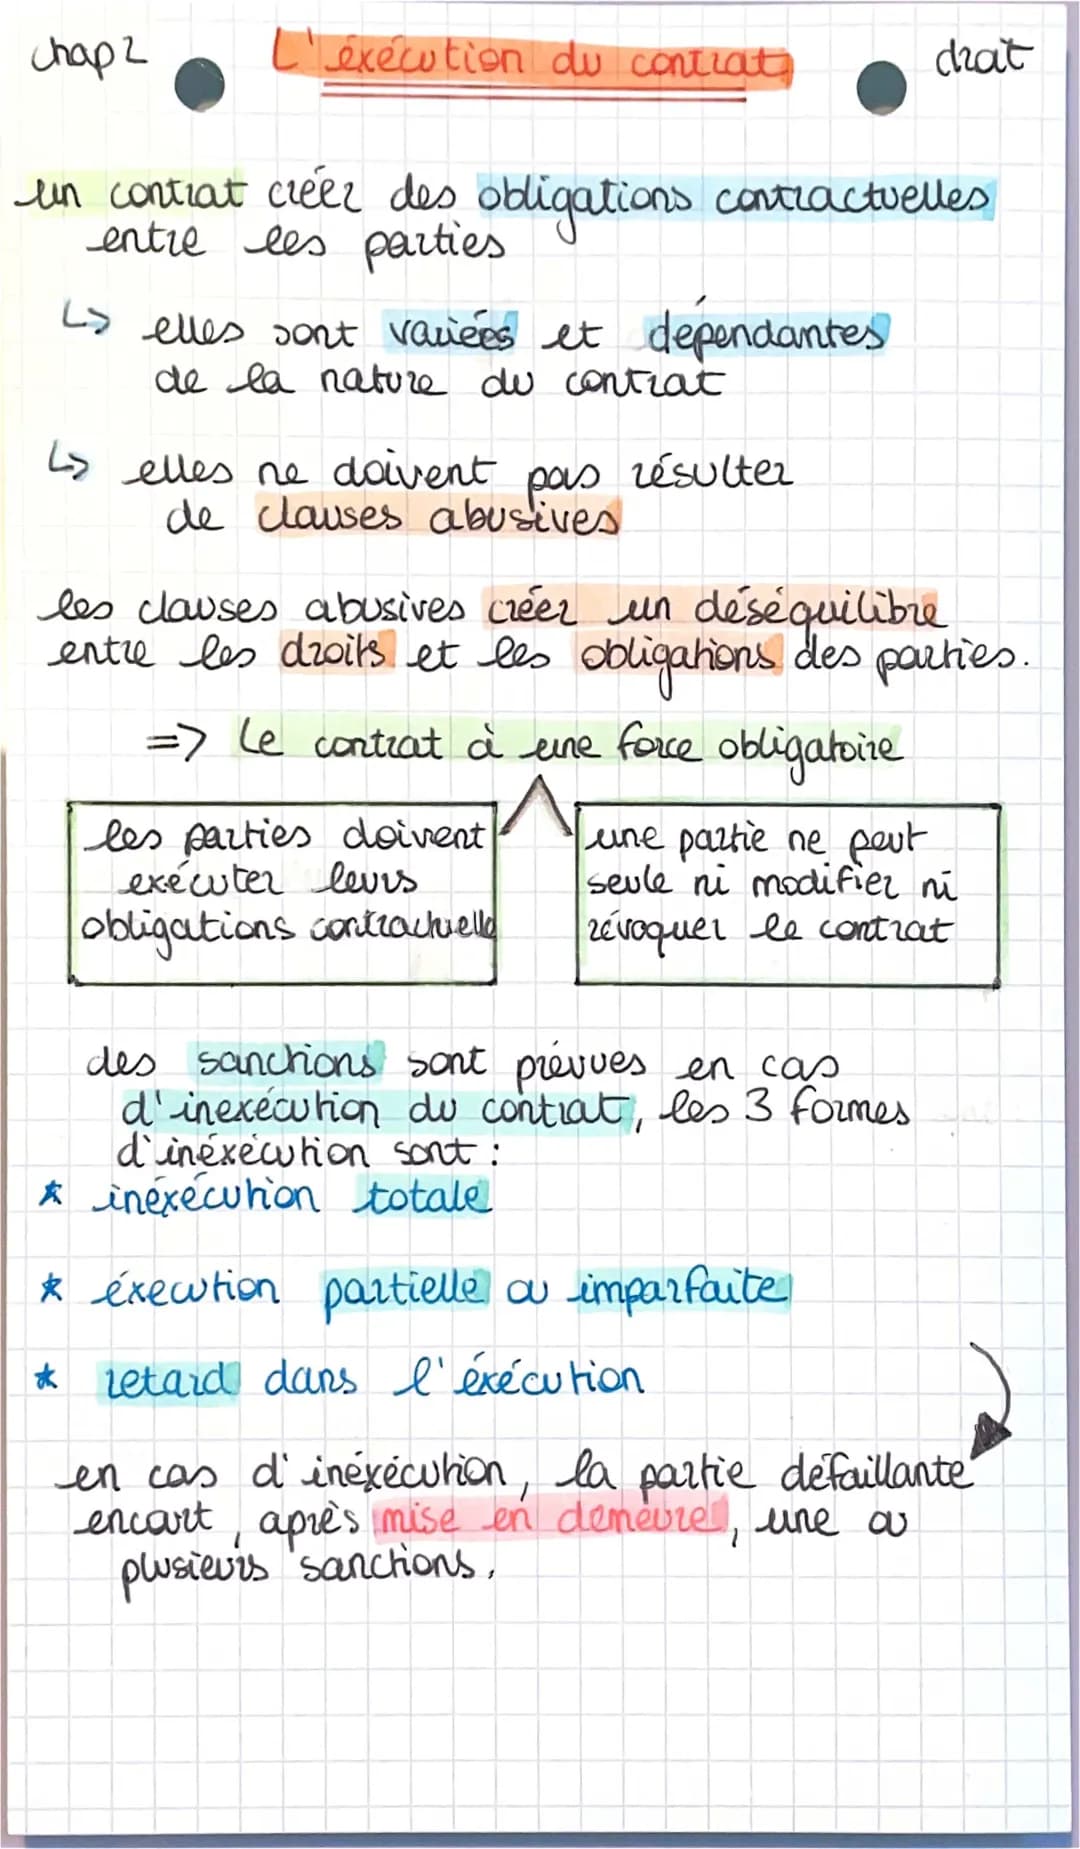 chap 2 L'éxécution du contrat droit
un contrat créer des obligations contractuelles
entre les parties
↳ elles sont variées et dépendantes
de la nature du contrat
↳ elles ne doivent pas résulter
de clauses abusives
les clauses abusives créer un déséquilibre
entre les droits et les obligations des parties.
=> Le contrat à une force obligatoire
les parties doivent
exécuter leurs
obligations contractuelle
une partie ne peut
seule ni modifier ni
révoquer le contrat
des sanctions sont prévues en cas
d'inexécution du contrat, les 3 formes
d'inéxécution sont :
* inéxécution totale
* éxecution partielle ou imparfaite
* retard dans l'éxécution
en cas d'inéxécution, la partie défaillante
encourt, après mise en demeure, une ou
plusieurs sanctions.